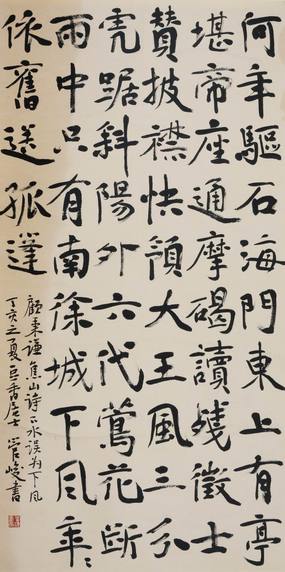 何年驅石海門東上有亭
堪帝座通摩碣讀殘徵士
贊披襟快領大王風三分
虎踞斜陽外六代鶯花斷
雨中只有南徐城下风年〻
依舊送孤篷
顧秉謙焦山诗下水误为下风
丁亥之夏巨香居士管峻書